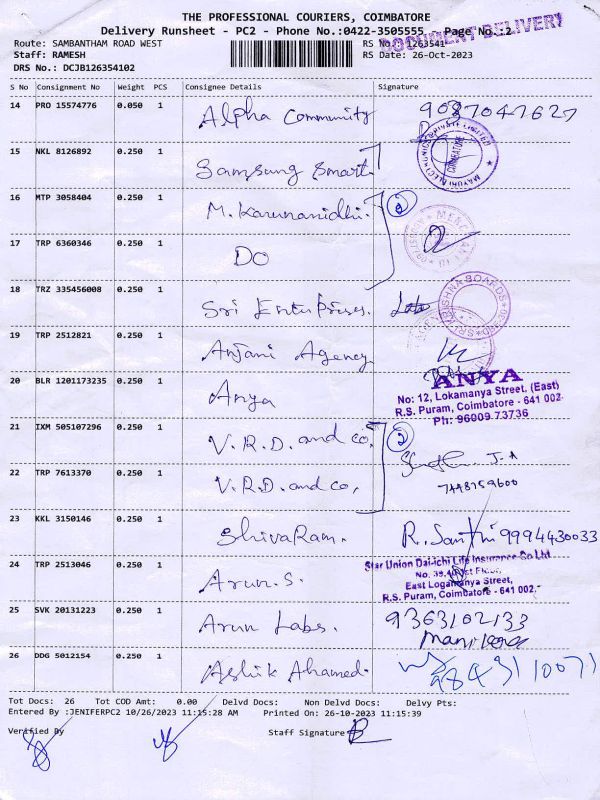 THE PROFESSIONAL COURIERS, COIMBATORE
Delivery Runsheet - PC2 - Phone No.:0422-3505555 Page No.:2
DOCUMENT DELIVERY
Route: SAMBANTHAM ROAD WEST RS No.: 1263541
Staff: RAMESH RS Date: 26-Oct-2023
DRS No.: DCJB126354102
S No Consignment No Weight PCS Consignee Details Signature
14 PRO 15574776 0.050 1 Alpha Community 9087047627
MAYURI ELECTRONICS PRIVATE LIMITED
COIMBATORE
15 NKL 8126892 0.250 1 Samsung Smart.
16 MTP 3058404 0.250 1 M. Karunanidhi. 2
17 TRP 6360346 0.250 1 DO
18 TRZ 335456008 0.250 1 Sri Enterprises.
SRI KRISHNA BOARDS
19 TRP 2512821 0.250 1 Anjani Agency
20 BLR 1201173235 0.250 1 Anya
ANYA
No: 12, Lokamanya Street, (East)
R.S. Puram, Coimbatore - 641 002.
Ph: 96009 73736
21 IXM 505107296 0.250 1 V.R.D. and co. 2
22 TRP 7613370 0.250 1 V.R.D. and co. 7448759600
23 KKL 3150146 0.250 1 ShivaRam. R. Santhi 9994430033
24 TRP 2513046 0.250 1 Arun.S.
Star Union Dai-ichi Life Insurance Co Ltd
East Logamanya Street,
R.S. Puram, Coimbatore - 641 002.
25 SVK 20131223 0.250 1 Arun Labs. 9363102133
26 DDG 5012154 0.250 1 Ashik Ahamed.
Tot Docs: 26 Tot COD Amt: 0.00 Delvd Docs: Non Delvd Docs: Delvy Pts:
Entered By :JENIFERPC2 10/26/2023 11:15:28 AM Printed On: 26-10-2023 11:15:39
Verified By Staff Signature